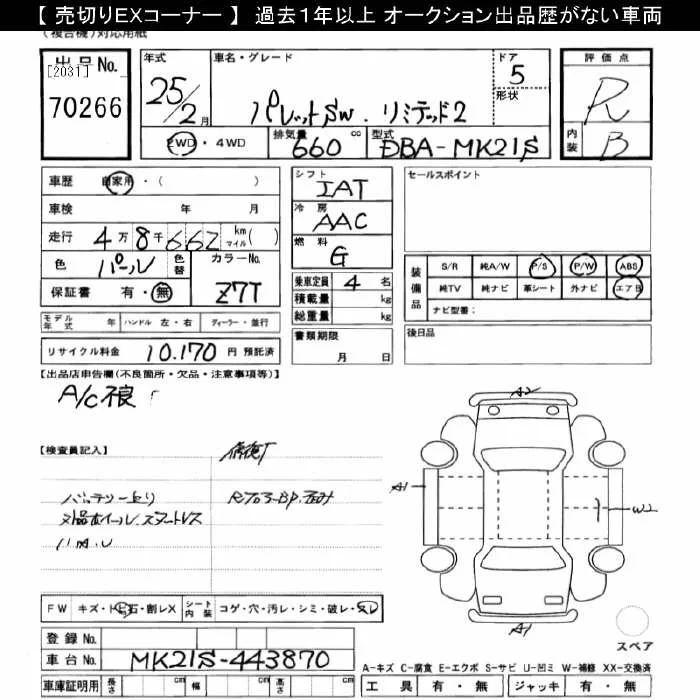 【 売切りEXコーナー 】 過去１年以上 オークション出品歴がない車両
（複合機）対応用紙
出品No.
[2031]
70266
年式
25/2月
車名・グレード
パレットSW. リミテッド2
ドア
5
形状
2WD・4WD
排気量
660 cc
型式
DBA-MK21S
評価点
R
内装
B
車歴 自家用・（ ）
車検 年 月
走行 4万8千662 km マイル( )
色 パール 色替
カラーNo.
Z7T
保証書 有・無
シフト
IAT
冷房
AAC
燃料
G
乗車定員 4 名
積載量 kg
総重量 kg
書類期限
月 日
セールスポイント
装備品
S/R 純A/W P/S P/W ABS
純TV 純ナビ 革シート 外ナビ エアB
ナビ型番：
後日品
モデル年式 年 ハンドル 左・右 ディーラー・並行
リサイクル料金 10.170 円 預託済
【出品店申告欄(不良箇所・欠品・注意事項等)】
A/C不良
【検査員記入】
外品ホイール.スペアレス
A2
A1
W2
A1
スペア
FW キズ・ト石・割レX シート内装 コゲ・穴・汚レ・シミ・破レ・スレ
登録 No.
車台 No. MK21S-443870
車庫証明用 長さ cm 幅 cm 高さ cm
A-キズ C-腐食 E-エクボ S-サビ U-凹ミ W-補修 XX-交換済
工具 有・無 ジャッキ 有・無